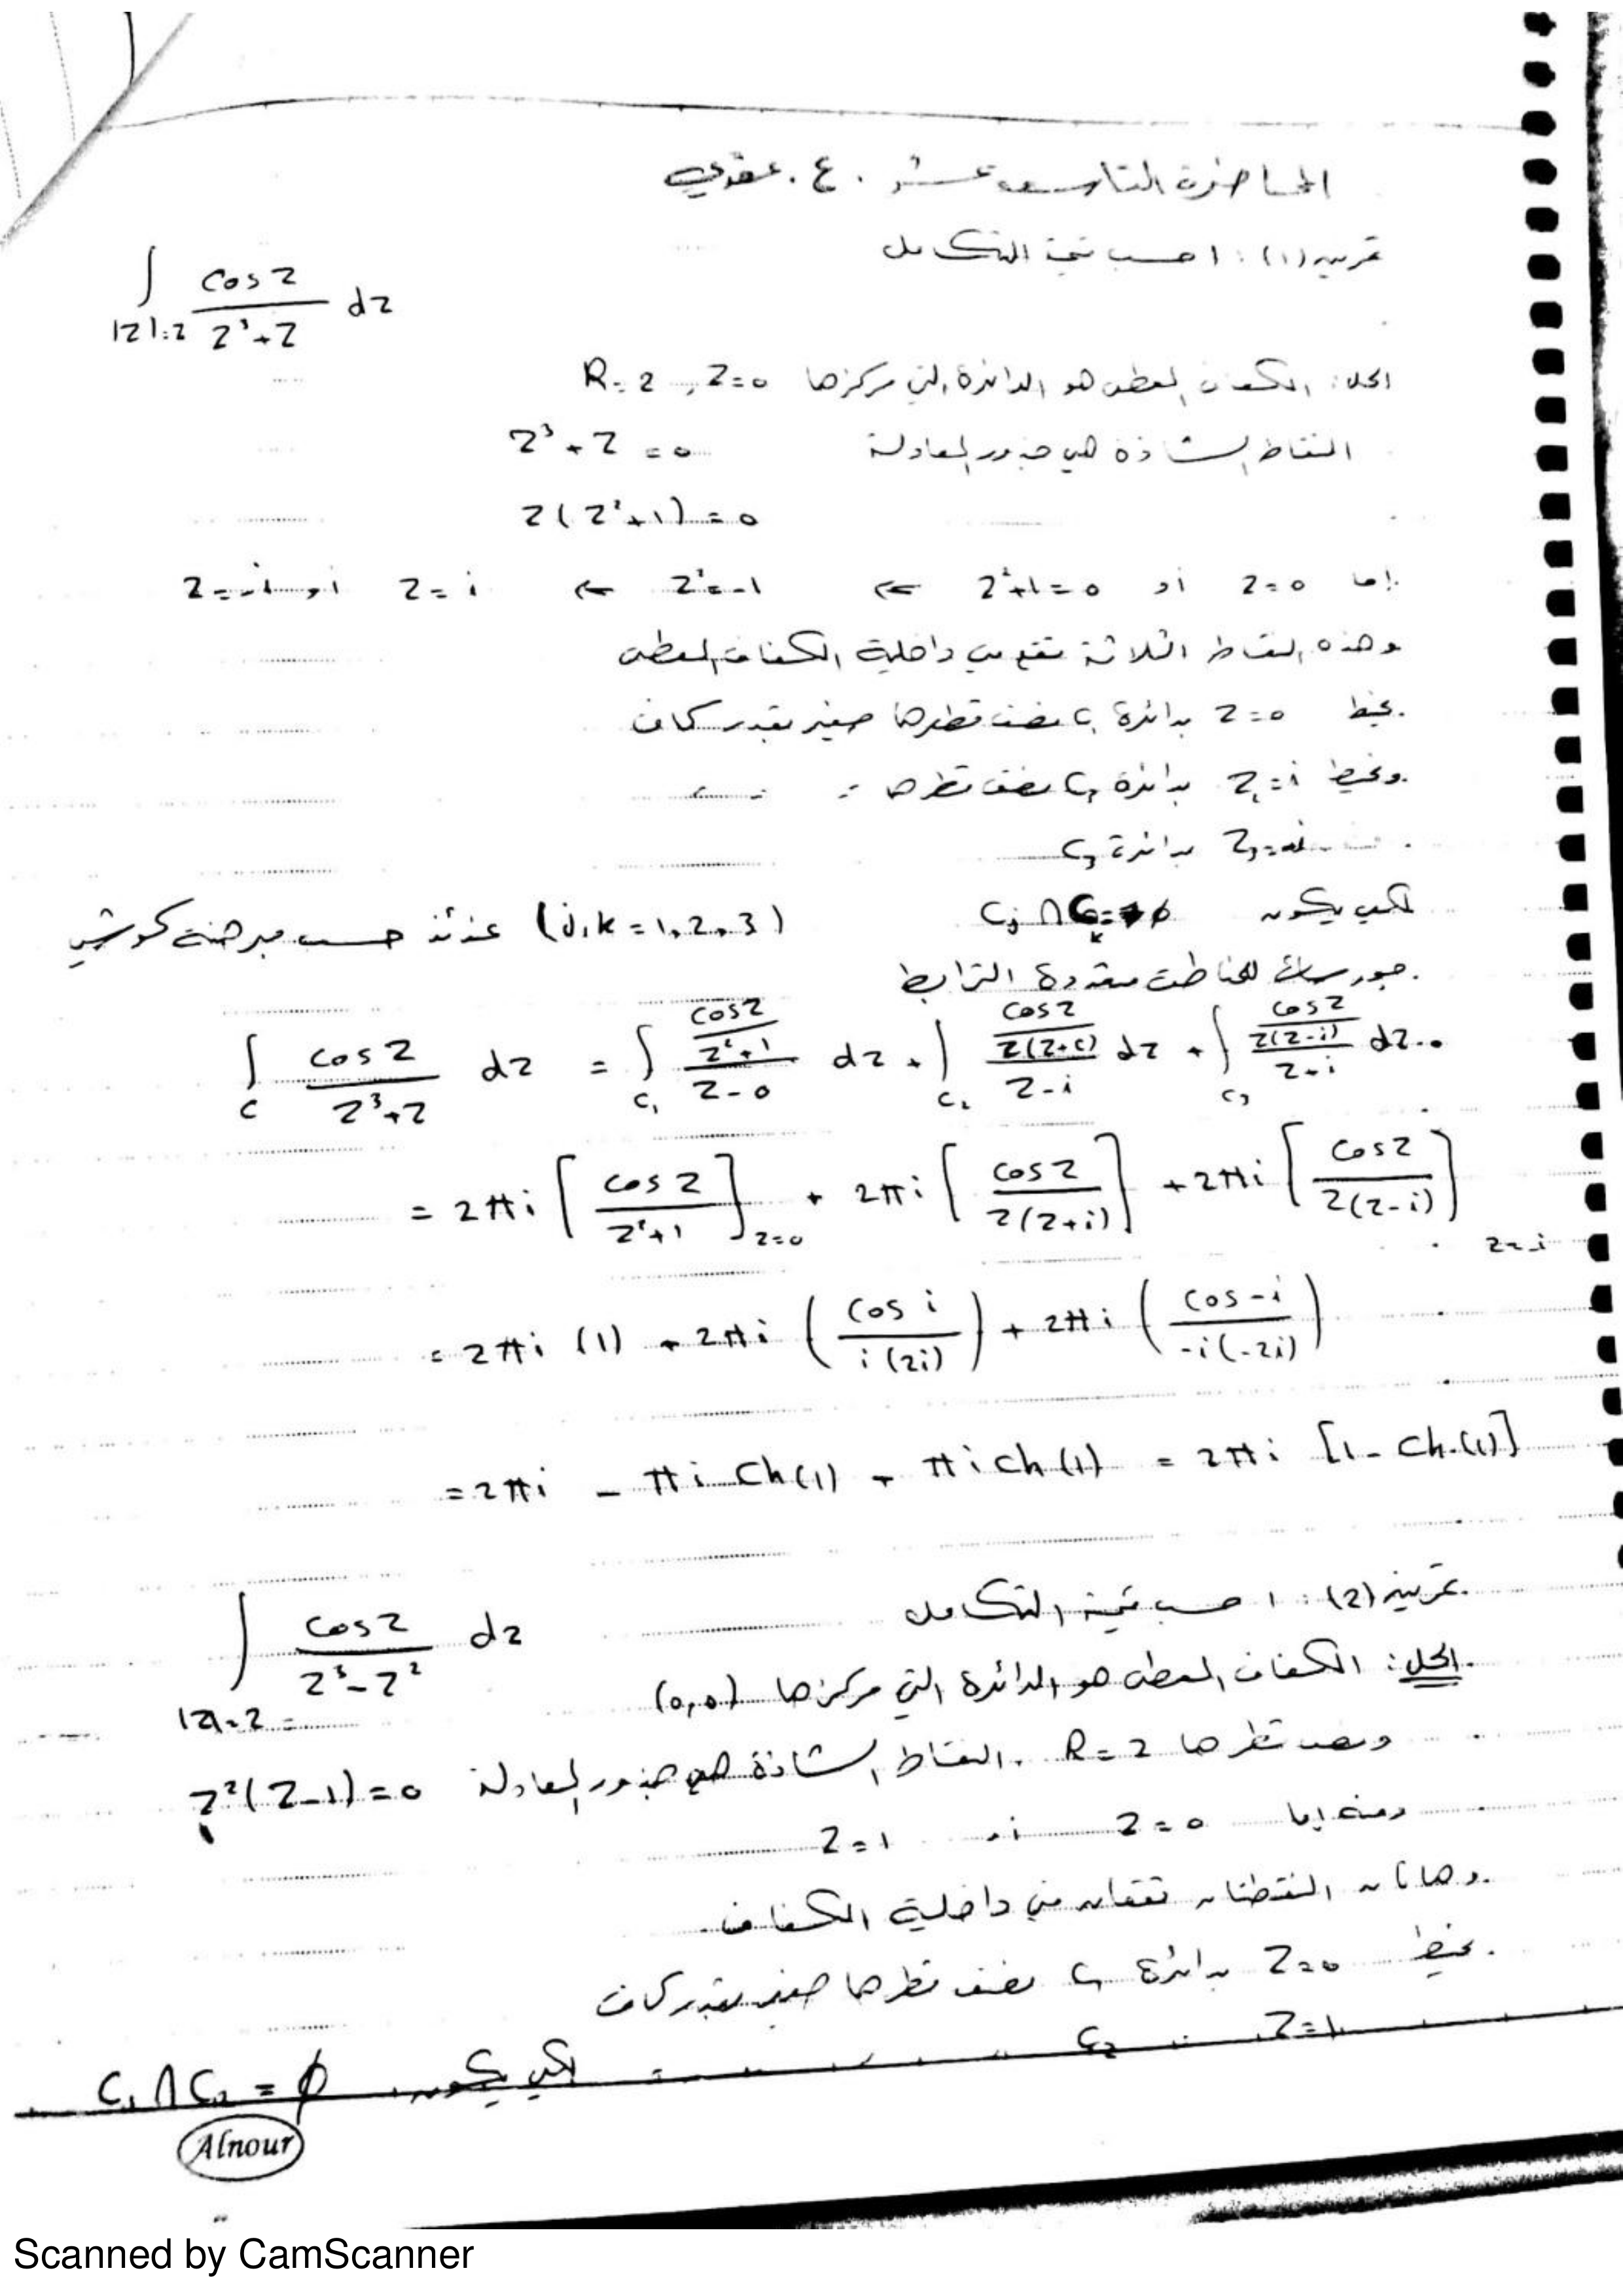 المحاضرة التاسعة عشر . ع . عقدي
تمرين (1) : احسب قيمة التكامل
∫_{|z|=2} cos z / (z³+z) dz
الحل: الكفاف المعطى هو الدائرة التي مركزها z=0 , R=2
النقاط الشاذة هي جذور المعادلة z³+z=0
z(z²+1)=0
إما z=0 أو z²+1=0 ⇐ z²=-1 ⇐ z=i أو z=-i
وهذه النقاط الثلاثة تقع في داخلية الكفاف المعطى
نحيط z=0 بدائرة C₁ نصف قطرها صغير بقدر كاف
ونحيط z₂=i بدائرة C₂ نصف قطرها = = =
= = z₃=-i بدائرة C₃
لكي يكون C_j ∩ C_k = ϕ (j,k=1,2,3) عندئذ حسب مبرهنة كوشي
جورسات للمناطق متعددة الترابط
∫_C cos z / (z³+z) dz = ∫_{C₁} (cos z / (z²+1)) / (z-0) dz + ∫_{C₂} (cos z / (z(z+i))) / (z-i) dz + ∫_{C₃} (cos z / (z(z-i))) / (z+i) dz
= 2πi [cos z / (z²+1)]_{z=0} + 2πi [cos z / (z(z+i))] + 2πi [cos z / (z(z-i))]_{z=-i}
= 2πi (1) + 2πi (cos i / (i(2i))) + 2πi (cos -i / (-i(-2i)))
= 2πi - πi ch(1) - πi ch(1) = 2πi [1 - ch(1)]
تمرين (2) : احسب قيمة التكامل
∫_{|z|=2} cos z / (z³-z²) dz
الحل: الكفاف المعطى هو الدائرة التي مركزها (0,0)
ونصف قطرها R=2 . النقاط الشاذة هي جذور المعادلة z²(z-1)=0
ومنه إما z=0 أو z=1
وهاتان النقطتان تقعان في داخلية الكفاف.
نحيط z=0 بدائرة C₁ نصف قطرها صغير بقدر كاف
z=1 = C₂ = = = = لكي يكون C₁ ∩ C₂ = ϕ
Alnour
Scanned by CamScanner